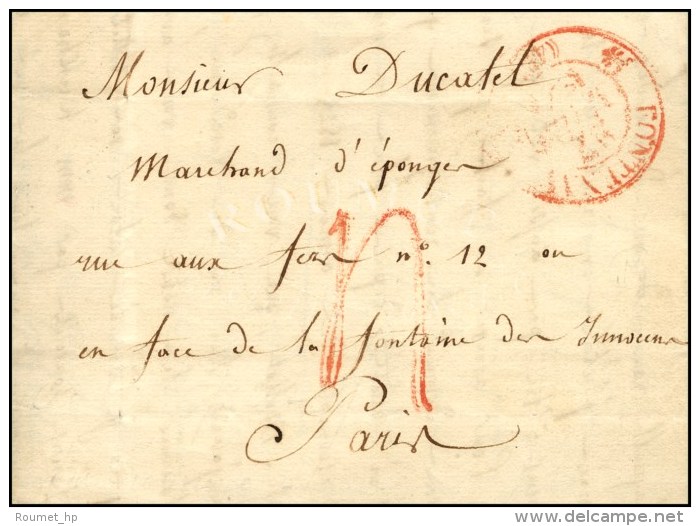 Monsieur Ducatel
Marchand d'éponges
rue aux fers n° 12 ou
en face de la fontaine des Innocens
Paris
Roumet_hp
www.delcampe.net